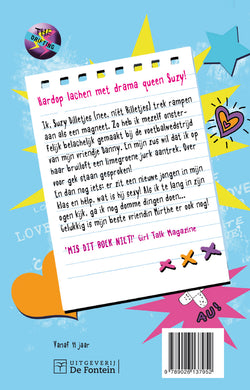 THE
DRIFTING
Hardop lachen met drama queen Suzy!
Ik, Suzy Billetjes (nee, níét Billetjes) trek rampen
aan als een magneet. Zo heb ik mezelf onster-
felijk belachelijk gemaakt bij de voetbalwedstrijd
van mijn vriendje Danny. En mijn zus wil dat ik op
haar bruiloft een limegroene jurk aantrek. Over
voor gek staan gesproken!
En dan nog iets: er zit een nieuwe jongen in mijn
klas en hélp, wat is hij sexy! Als ik te lang in zijn
ogen kijk, ga ik nog domme dingen doen...
Gelukkig is mijn beste vriendin Mirthe er ook nog!
'MIS DIT BOEK NIET!' Girl Talk Magazine
AU!
Vanaf 11 jaar
UITGEVERIJ
De Fontein
9 789026 137952